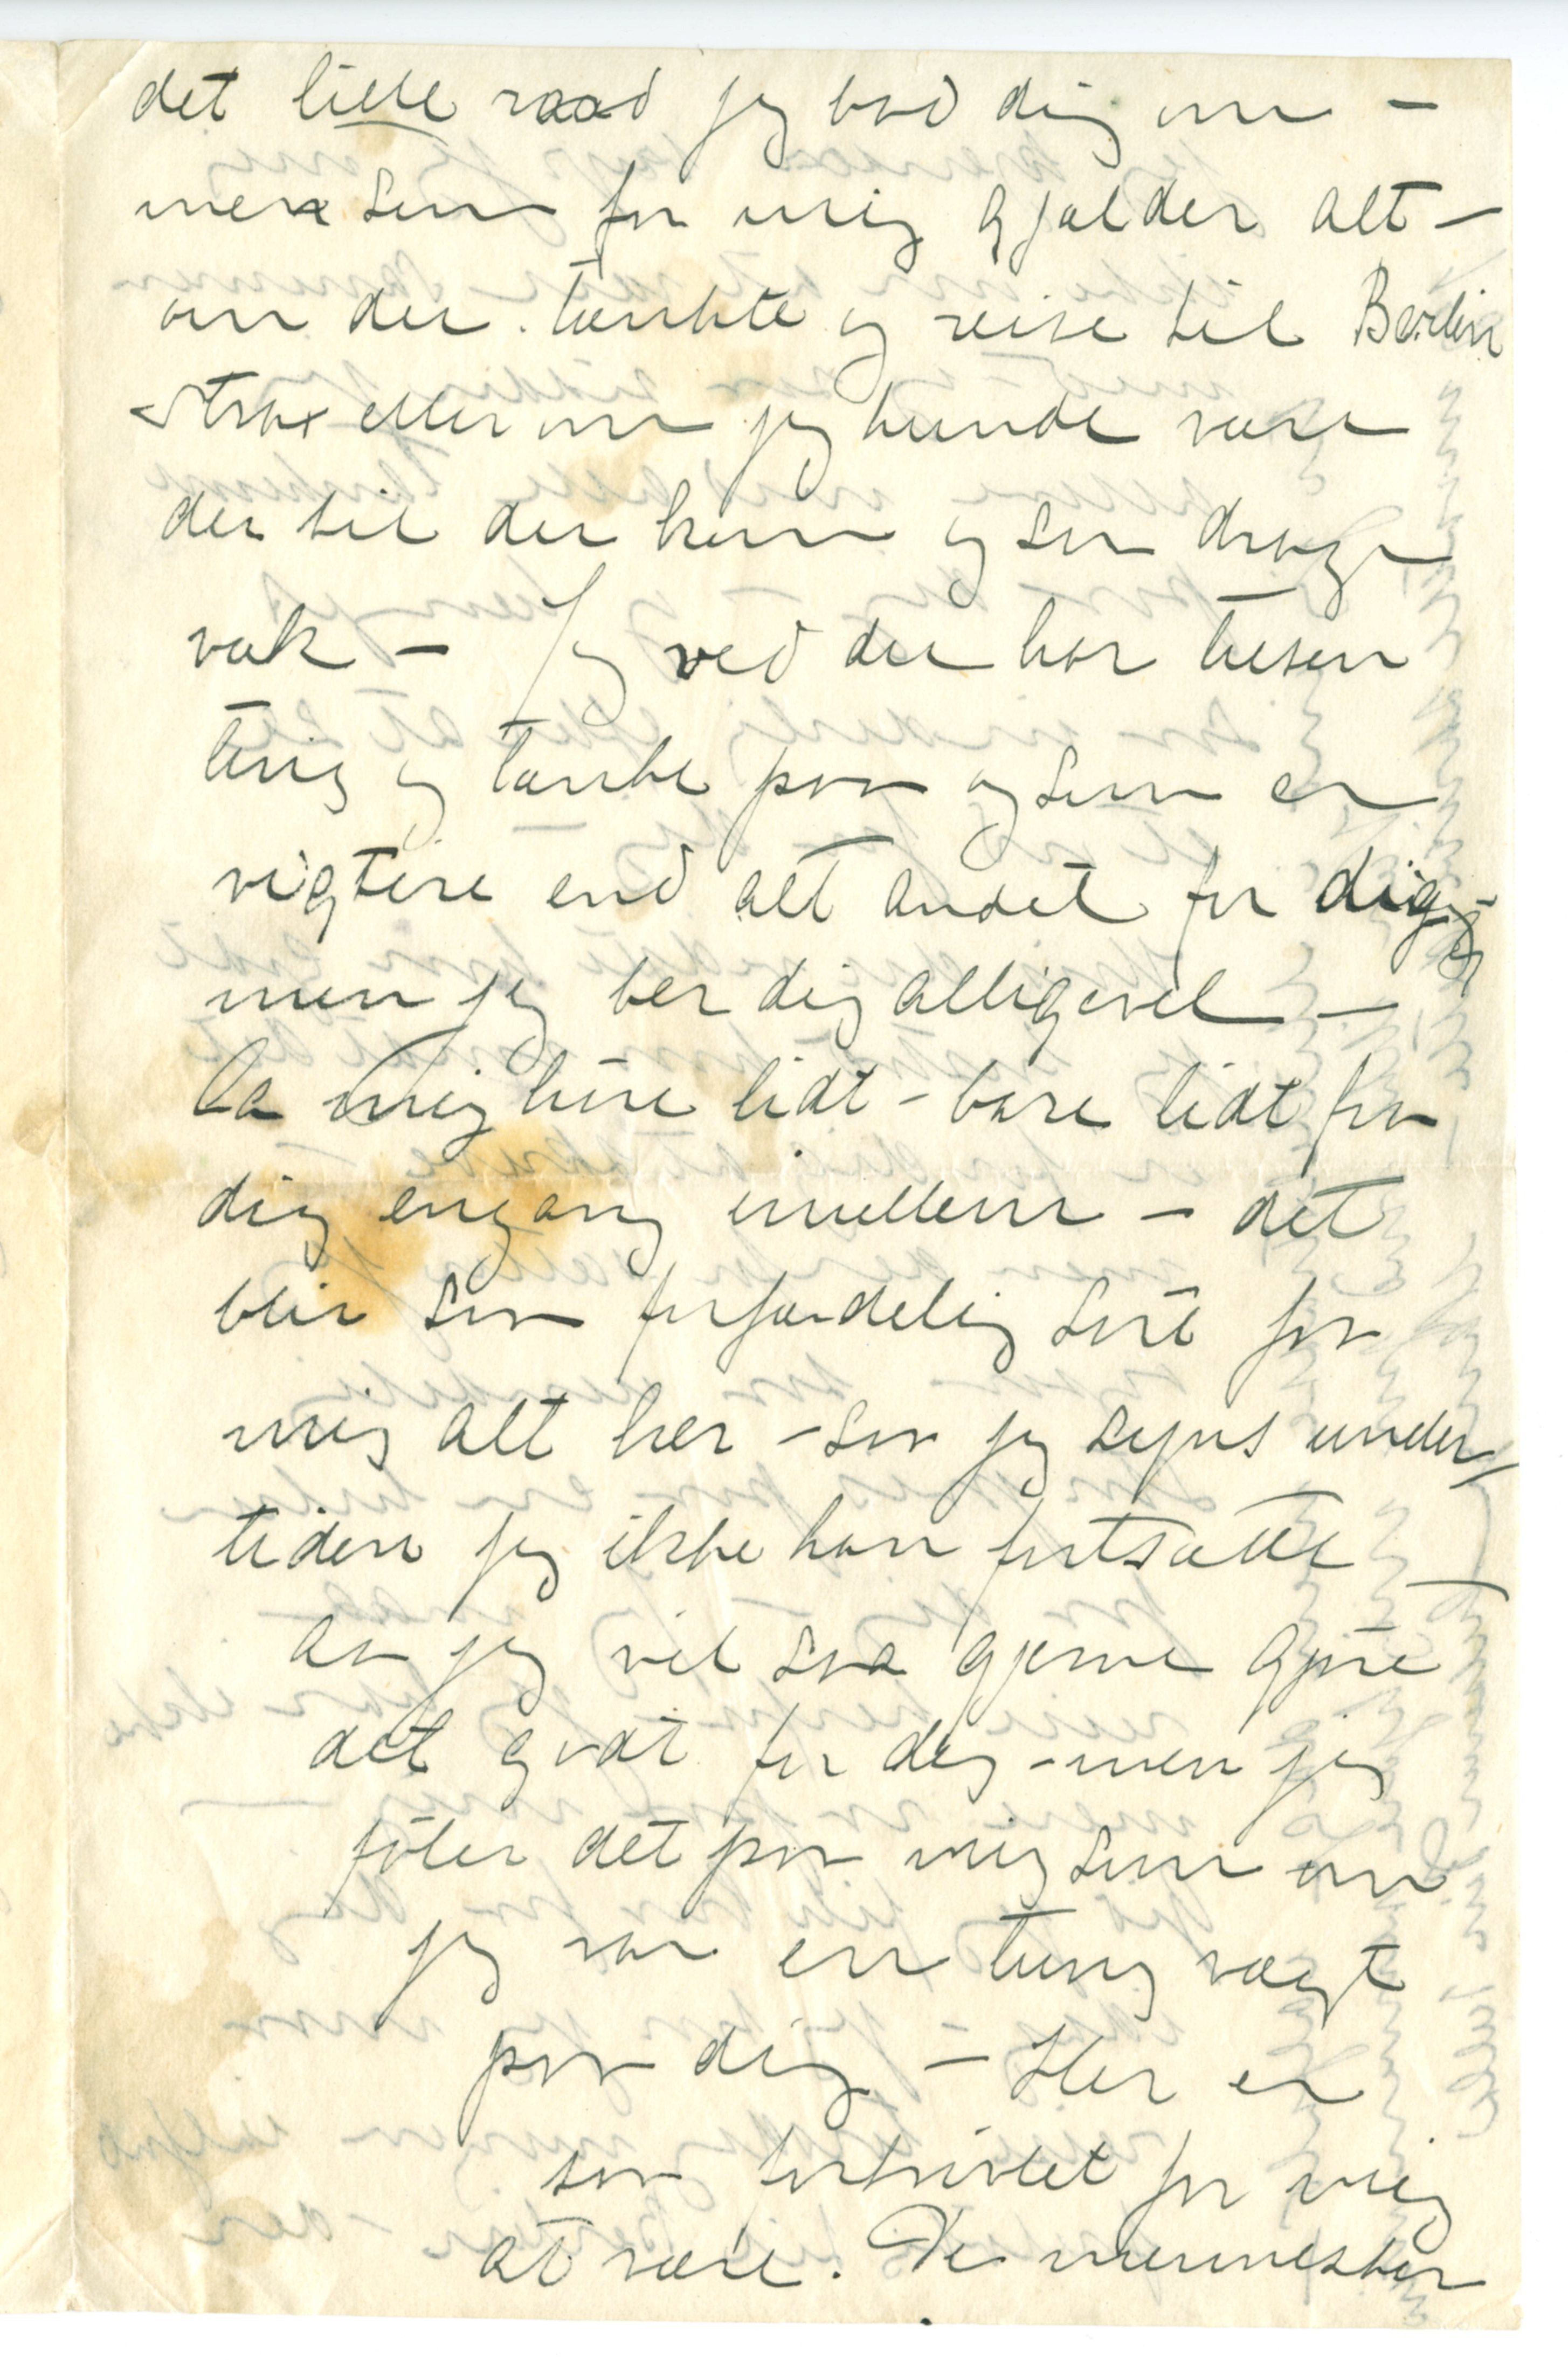 det lille raad jeg bad dig om –
men som for mig gjælder alt –
om du tænkte og reise til Berlin
strax eller om jeg kunde være
der til du kom og saa drage
væk – Jeg ved du har tusen
ting og tænke paa og som er
vigtere end alt andet for dig –
men jeg ber dig alligevel –
la mig høre lidt – bare lidt fra
dig engang imellem – det
blir saa forfærdelig sort for
mig alt her – saa jeg synes under
tiden jeg ikke kan fortsætte –
aa jeg vil saa gjerne gjøre
det godt for dig – men jeg
føler det paa mig som om
jeg var en tung vægt
paa dig – Her er
saa fortvivlet for mig
at være. De mennesker